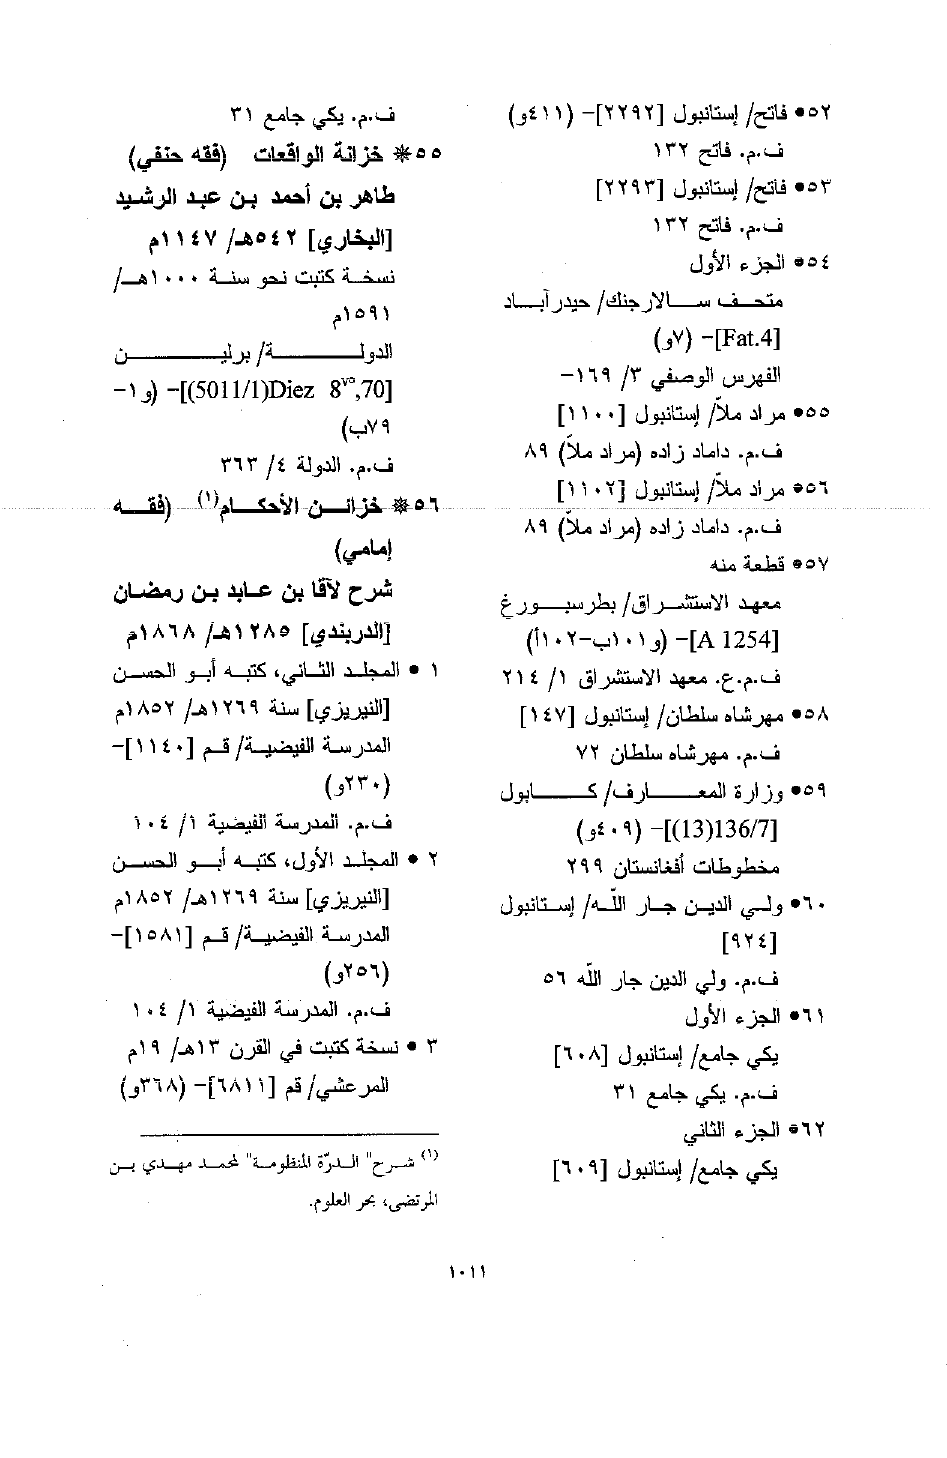 ٥٢• فاتح/ إستانبول [٢٢٩٢]- (٤١١و)
ف.م. فاتح ١٣٢
٥٣• فاتح/ إستانبول [٢٢٩٣]
ف.م. فاتح ١٣٢
٥٤• الجزء الأول
متحف سالارجنك/ حيدر آباد
[Fat.4]- (٧و)
الفهرس الوصفي ٣/ ١٦٩-
٥٥• مراد ملاّ/ إستانبول [١١٠٠]
ف.م. داماد زاده (مراد ملاّ) ٨٩
٥٦• مراد ملاّ/ إستانبول [١١٠٢]
ف.م. داماد زاده (مراد ملاّ) ٨٩
٥٧• قطعة منه
معهد الاستشراق/ بطرسبورغ
[A 1254]- (و١٠١ب-١٠٢أ)
ف.م.ع. معهد الاستشراق ١/ ٢١٤
٥٨• مهرشاه سلطان/ إستانبول [١٤٧]
ف.م. مهرشاه سلطان ٧٢
٥٩• وزارة المعارف/ كابول
[136/7(13)]- (٤٠٩و)
مخطوطات أفغانستان ٢٩٩
٦٠• ولي الدين جار اللّه/ إستانبول
[٩٢٤]
ف.م. ولي الدين جار اللّه ٥٦
٦١• الجزء الأول
يكي جامع/ إستانبول [٦٠٨]
ف.م. يكي جامع ٣١
٦٢• الجزء الثاني
يكي جامع/ إستانبول [٦٠٩]
ف.م. يكي جامع ٣١
٥٥❋ خزانة الواقعات (فقه حنفي)
طاهر بن أحمد بن عبد الرشيد
[البخاري] ٥٤٢هـ/ ١١٤٧م
نسخة كتبت نحو سنة ١٠٠٠هـ/
١٥٩١م
الدولة/ برلين
[(5011/1)Diez 8ᵛᵒ,70]- (و١-
٧٩ب)
ف.م. الدولة ٤/ ٣٦٣
٥٦❋ خزائن الأحكام(١) (فقه
إمامي)
شرح لآقا بن عابد بن رمضان
[الدربندي] ١٢٨٥هـ/ ١٨٦٨م
١ • المجلد الثاني، كتبه أبو الحسن
[النيريزي] سنة ١٢٦٩هـ/ ١٨٥٢م
المدرسة الفيضية/ قم [١١٤٠]-
(٢٣٠و)
ف.م. المدرسة الفيضية ١/ ١٠٤
٢ • المجلد الأول، كتبه أبو الحسن
[النيريزي] سنة ١٢٦٩هـ/ ١٨٥٢م
المدرسة الفيضية/ قم [١٥٨١]-
(٢٥٦و)
ف.م. المدرسة الفيضية ١/ ١٠٤
٣ • نسخة كتبت في القرن ١٣هـ/ ١٩م
المرعشي/ قم [٦٨١١]- (٣٦٨و)
(١) شرح" الدرّة المنظومة" لمحمد مهدي بن
المرتضى، بحر العلوم.
١٠١١